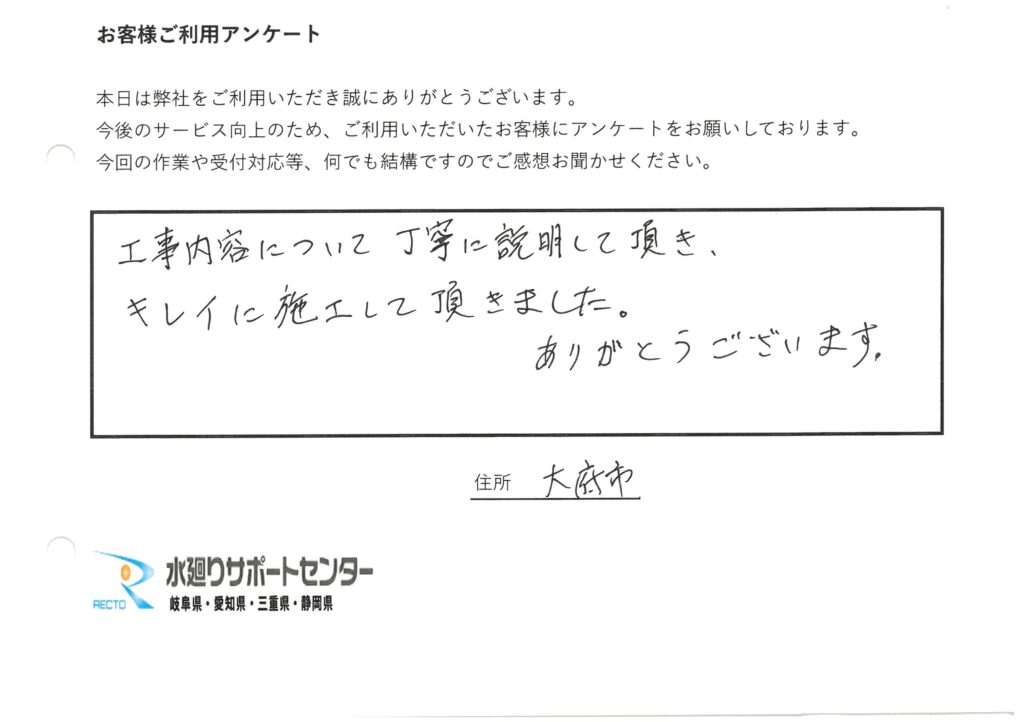 お客様ご利用アンケート
本日は弊社をご利用いただき誠にありがとうございます。
今後のサービス向上のため、ご利用いただいたお客様にアンケートをお願いしております。
今回の作業や受付対応等、何でも結構ですのでご感想お聞かせください。
工事内容について丁寧に説明して頂き、
キレイに施工して頂きました。
ありがとうございます。
住所 大府市
RECTO 水廻りサポートセンター
岐阜県・愛知県・三重県・静岡県